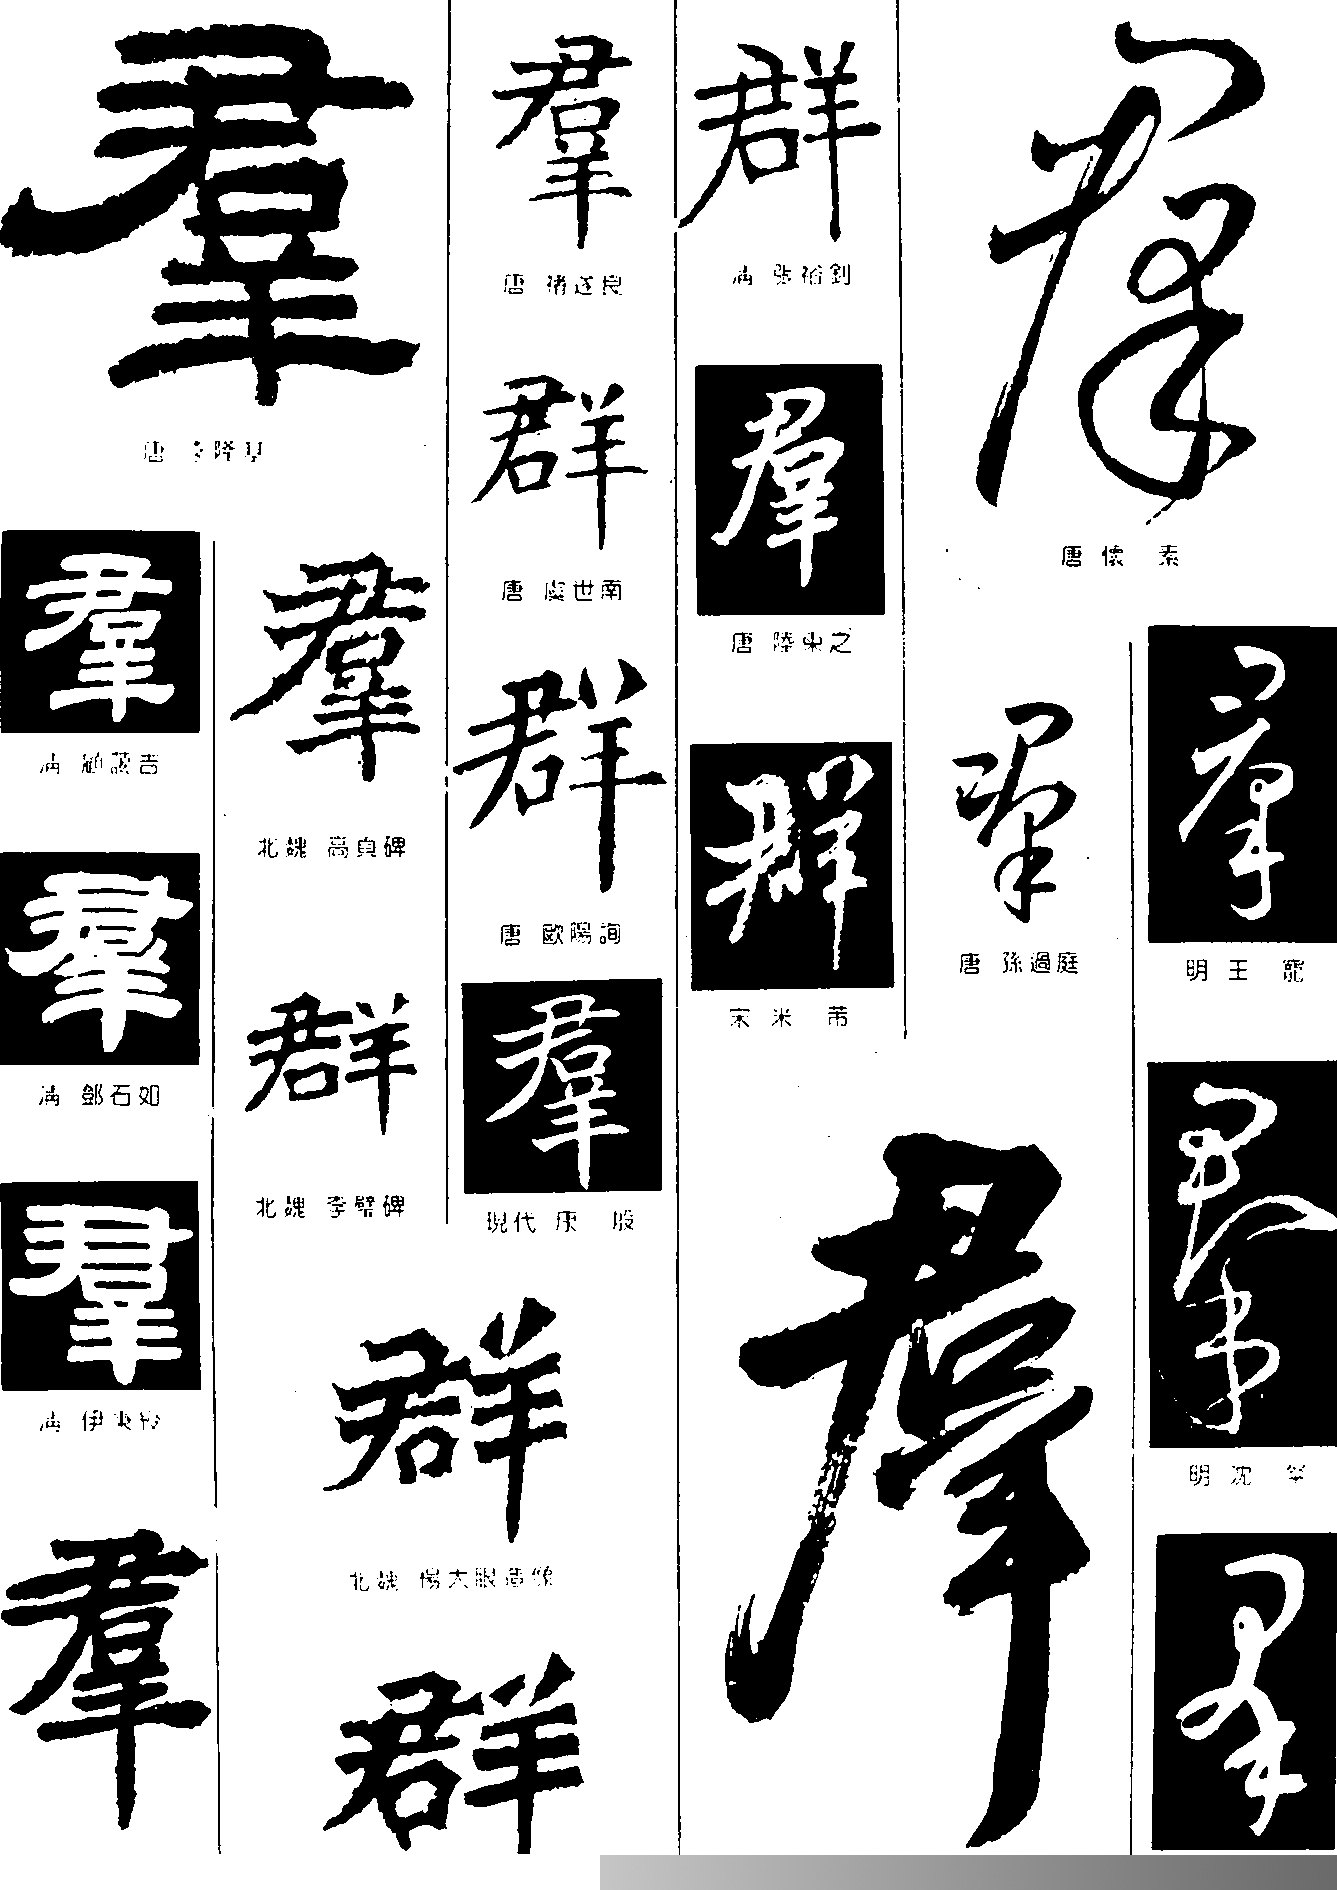 羣
唐 李隆基
羣
清 顧藹吉
羣
清 鄧石如
羣
清 伊秉綬
羣
羣
北魏 高貞碑
群
北魏 李璧碑
群
北魏 楊大眼造像
群
羣
唐 褚遂良
群
唐 虞世南
群
唐 歐陽詢
羣
現代 康 殷
群
清 張裕釗
羣
唐 陸柬之
群
宋 米 芾
羣
羣
唐 懷 素
羣
唐 孫過庭
羣
明 王 寵
羣
明 沈 粲
羣